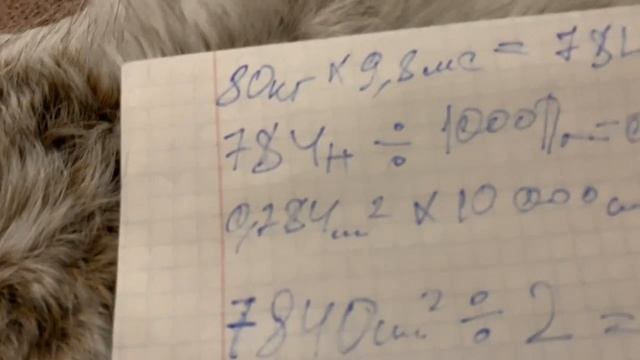 80кг × 9,8мс = 784
784н ÷ 1000П =
0,784м² × 10 000см
7840см² ÷ 2 =